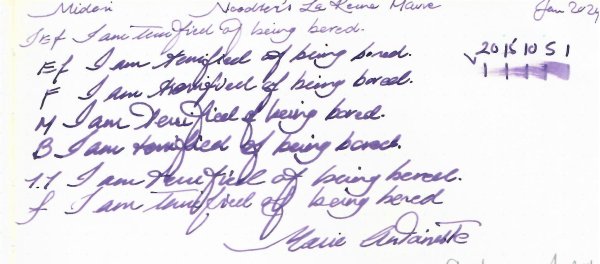 Midori Noodler's La Reine Mauve Jan 2024
JEf I am terrified of being bored.
Ef I am terrified of being bored.
F I am terrified of being bored.
M I am terrified of being bored.
B I am terrified of being bored.
1.1 I am terrified of being bored.
f I am terrified of being bored
Marie Antoinette
20 15 10 5 1